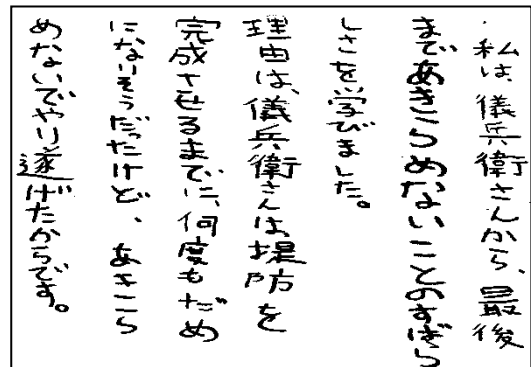 私は、儀兵衛さんから、最後
まであきらめないことのすばら
しさを学びました。
理由は、儀兵衛さんは、堤防を
完成させるまでに、何度もだめ
になりそうだったけど、あきら
めないでやり遂げたからです。